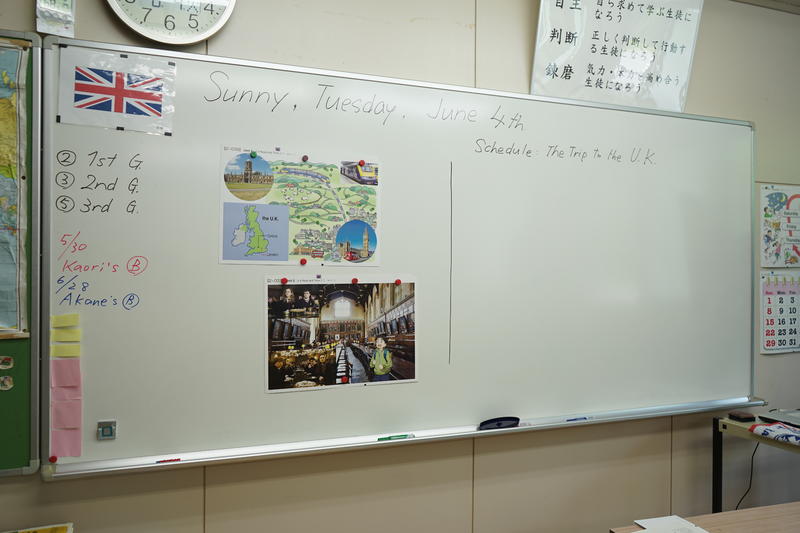 7 6 5
自主
自ら求めて学ぶ生徒に
なろう
判断
正しく判断して行動す
る生徒になろう
錬磨
生徒になろう
Sunny, Tuesday, June 4th
Schedule: The Trip to the U.K.
② 1st G.
③ 2nd G.
⑤ 3rd G.
5/30
Kaori's Ⓑ
6/28
Akane's Ⓑ
the U.K.
Oxford
London
Sun Mon Tue
1 2 3
8 9 10
15 16 17
22 23 24
29 30 31